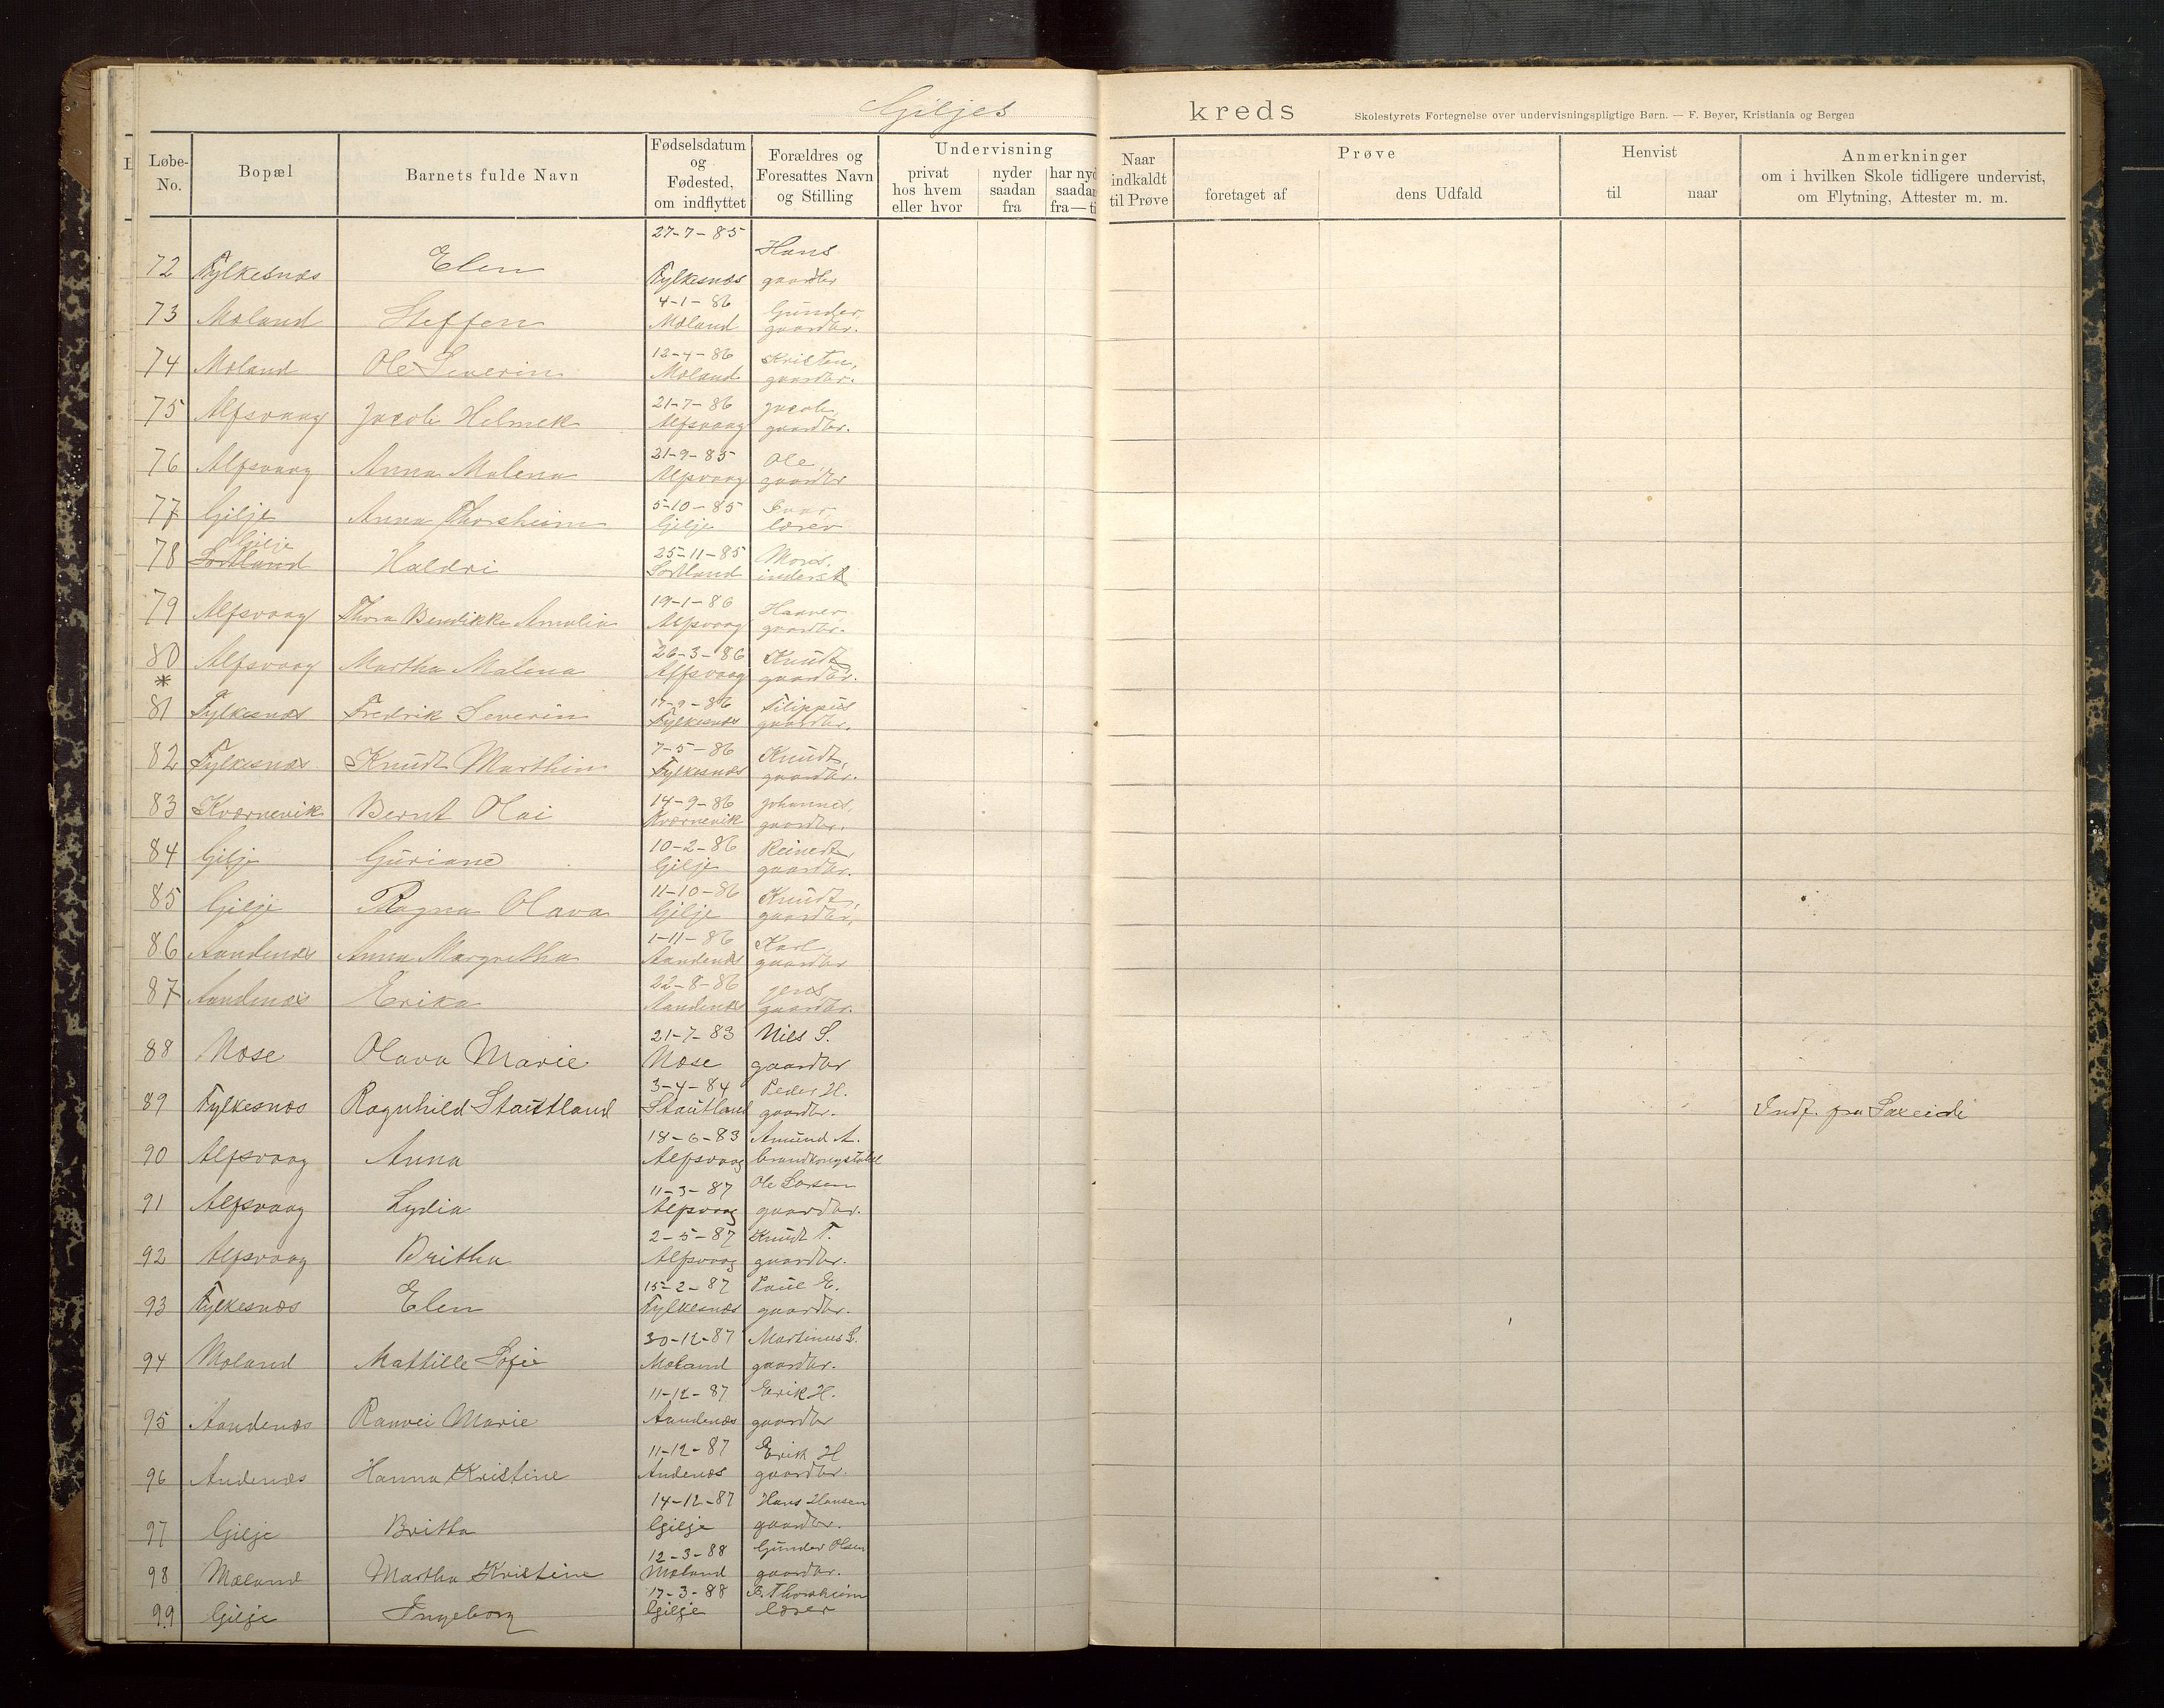 Giljes kreds
Skolestyrets Fortegnelse over undervisningspligtige Børn. — F. Beyer, Kristiania og Bergen
Løbe-No. Bopæl Barnets fulde Navn Fødselsdatum og Fødested, om indflyttet Forældres og Foresattes Navn og Stilling Undervisning privat hos hvem eller hvor nyder saadan fra har nyd saadan fra — ti Naar indkaldt til Prøve Prøve foretaget af dens Udfald Henvist til naar Anmerkninger om i hvilken Skole tidligere undervist, om Flytning, Attester m. m.
27-7-85 Hans
72 Fylkesnæs Elen Fylkesnæs gaardbr
4-1-86 Gunder,
73 Moland Steffen Moland gaardbr.
12-4-86 Kristen,
74 Moland Ole Severin Moland gaardbr.
21-7-86 Jacob,
75 Alfsvaag Jacob Helmek Alfsvaag gaardbr.
21-9-85 Ole,
76 Alfsvaag Anna Malena Alfsvaag gaardbr
5-10-85 Ivar,
77 Gilje Anna Thorsheim Gilje lærer
Gilje 25-11-85 Mons,
78 Sortland Haldri Sortland inderst
19-1-86
79 Alfsvaag Thora Bendikke Amalia Alfsvaag gaardbr.
26-3-86 Knudt
80 Alfsvaag Martha Malena Alfsvaag gaardbr.
*
17-9-86 Filippus
81 Fylkesnæs Fredrik Severin Fylkesnæs gaardbr.
7-5-86 Knudt,
82 Fylkesnæs Knudt Marthin Fylkesnæs gaardbr.
14-9-86 Johannes,
83 Kværnevik Bernt Olai Kværnevik gaardbr.
10-2-86 Reinert,
84 Gilje Guriane Gilje gaardbr.
11-10-86 Knudt,
85 Gilje Ragna Olava Gilje gaardbr,
1-11-86 Karl,
86 Aandenæs Anna Margretha Aandenæs gaardbr
22-8-86 Jens,
87 Aandenæs Erika Aandenæs gaardbr.
21-7-83 Nils S.
88 Mose Olava Marie Mose gaardbr
3-4-84 Peder H.
89 Fylkesnæs Ragnhild Stautland Stautland gaardbr. Indf. fra Saxeide
18-6-83 Amund A.
90 Alfsvaag Anna Alfsvaag
11-3-87 Ole Larsen
91 Alfsvaag Lydia Alfsvaag gaardbr.
2-5-87 Knudt T.
92 Alfsvaag Britha Alfsvaag gaardbr.
15-2-87 Paul E.
93 Fylkesnæs Elen Fylkesnæs gaardbr.
30-12-87 Martinus S.
94 Moland Mattille Sofie Moland gaardbr.
11-12-87 Erik H.
95 Aandenæs Ranvei Marie Aandenæs gaardbr
11-12-87 Erik H
96 Andenæs Hanna Kristine Andenæs gaardbr.
14-12-87 Hans Hansen
97 Gilje Britha Gilje gaardbr.
12-3-88 Gunder Olsen
98 Moland Martha Kristine Moland gaardbr.
17-3-88 Thorsheim
99 Gilje Ingeborg Gilje lærer